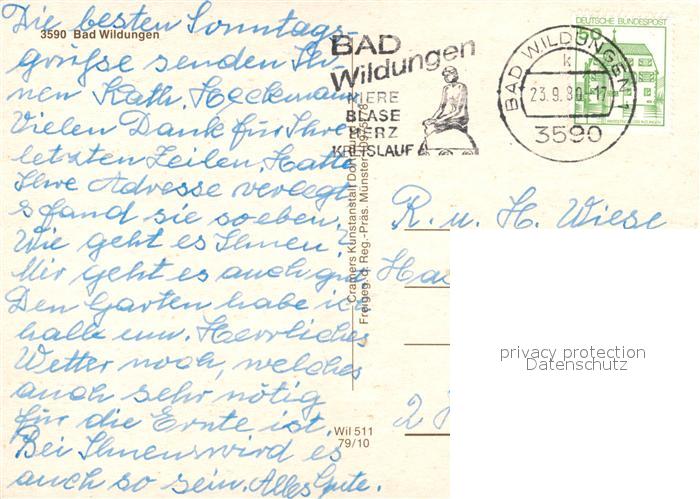 Die besten Sonntags-
3590 Bad Wildungen
grüße senden Ih-
nen Kath. Heckmann
Vielen Dank für Ihre
letzten Zeilen. Hatte
Ihre Adresse verlegt
s fand sie soeben.
Wie geht es Ihnen?
Mir geht es auch gut
Den Garten habe ich
halb um. Herrliches
Wetter noch, welches
auch sehr nötig
für die Ernte ist.
Bei Ihnen wird es
auch so sein. Alles Gute.
Cramers Kunstanstalt Dortmund
Freigeg. d. Reg.-Präs. Münster
Wil 511
79/10
BAD
Wildungen
NIERE
BLASE
HERZ
KREISLAUF
BAD WILDUNGEN 1
k
23.9.80.-17
3590
DEUTSCHE BUNDESPOST
R. u. H. Wiese
Ha
2
privacy protection
Datenschutz